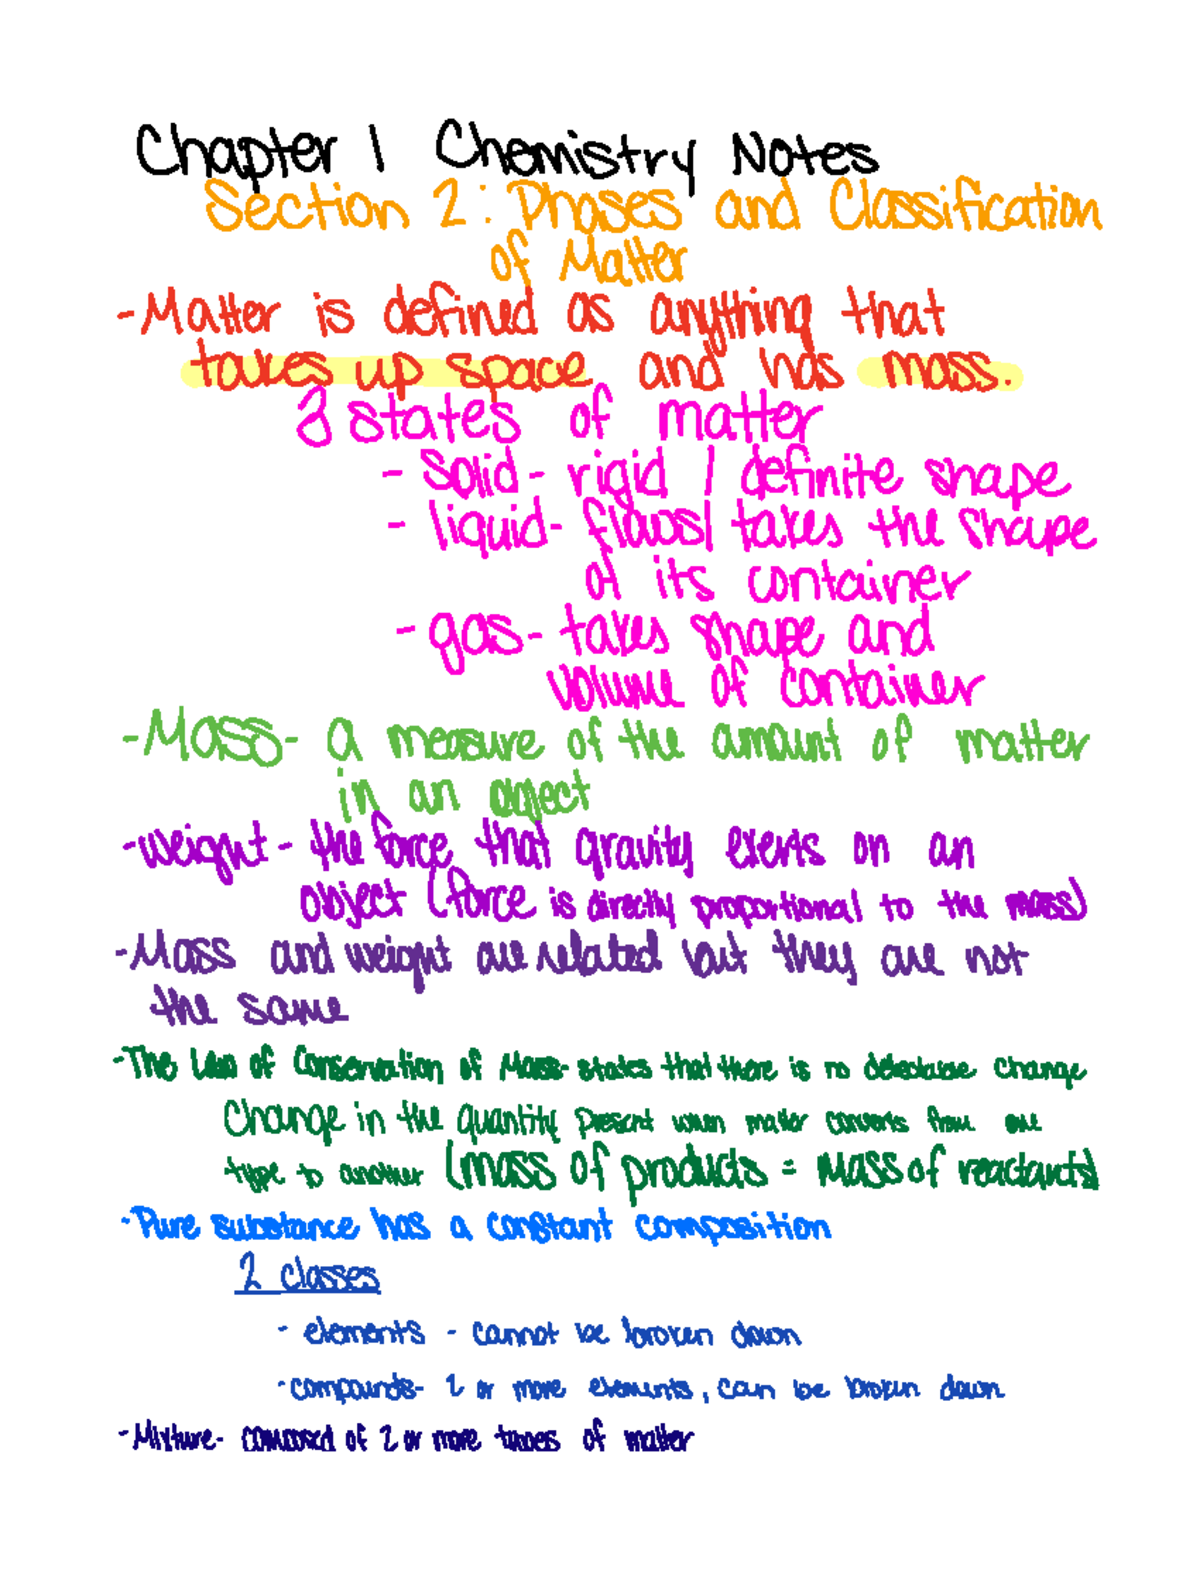 Chapter 1 Chemistry Notes
Section 2: Phases and Classification
of Matter
-Matter is defined as anything that
takes up space and has mass.
3 states of matter
- Solid - rigid / definite shape
- liquid- flows/ takes the shape
of its container
- gas- takes shape and
volume of container
-Mass- a measure of the amount of matter
in an object
-weight- the force that gravity exerts on an
object (force is directly proportional to the mass)
-Mass and weight are related but they are not
the same
-The Law of Conservation of Mass- states that there is no detectable change
change in the quantity present when matter converts from one
type to another (mass of products = mass of reactants)
-Pure substance has a constant composition
2 classes
- elements - cannot be broken down
-compounds- 2 or more elements, can be broken down
-Mixture- composed of 2 or more types of matter